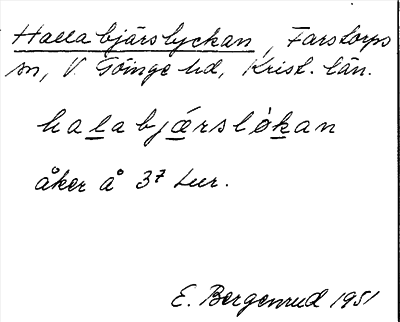 Hallabjärslyckan, Farstorps
sn, V. Göinge hd, Krist. län.
halabjærsløkan
åker å 3⁷ tur.
E. Bergenrud 1951